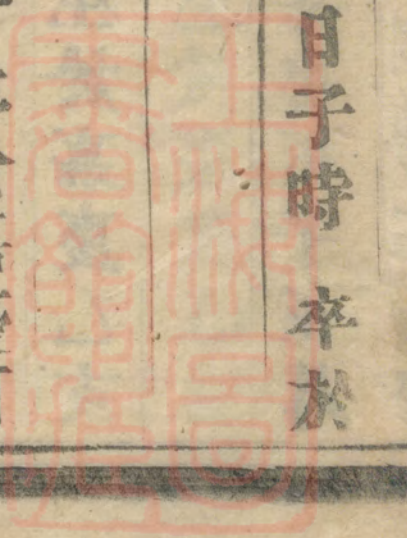 日子時 卒於
上海圖
書館藏